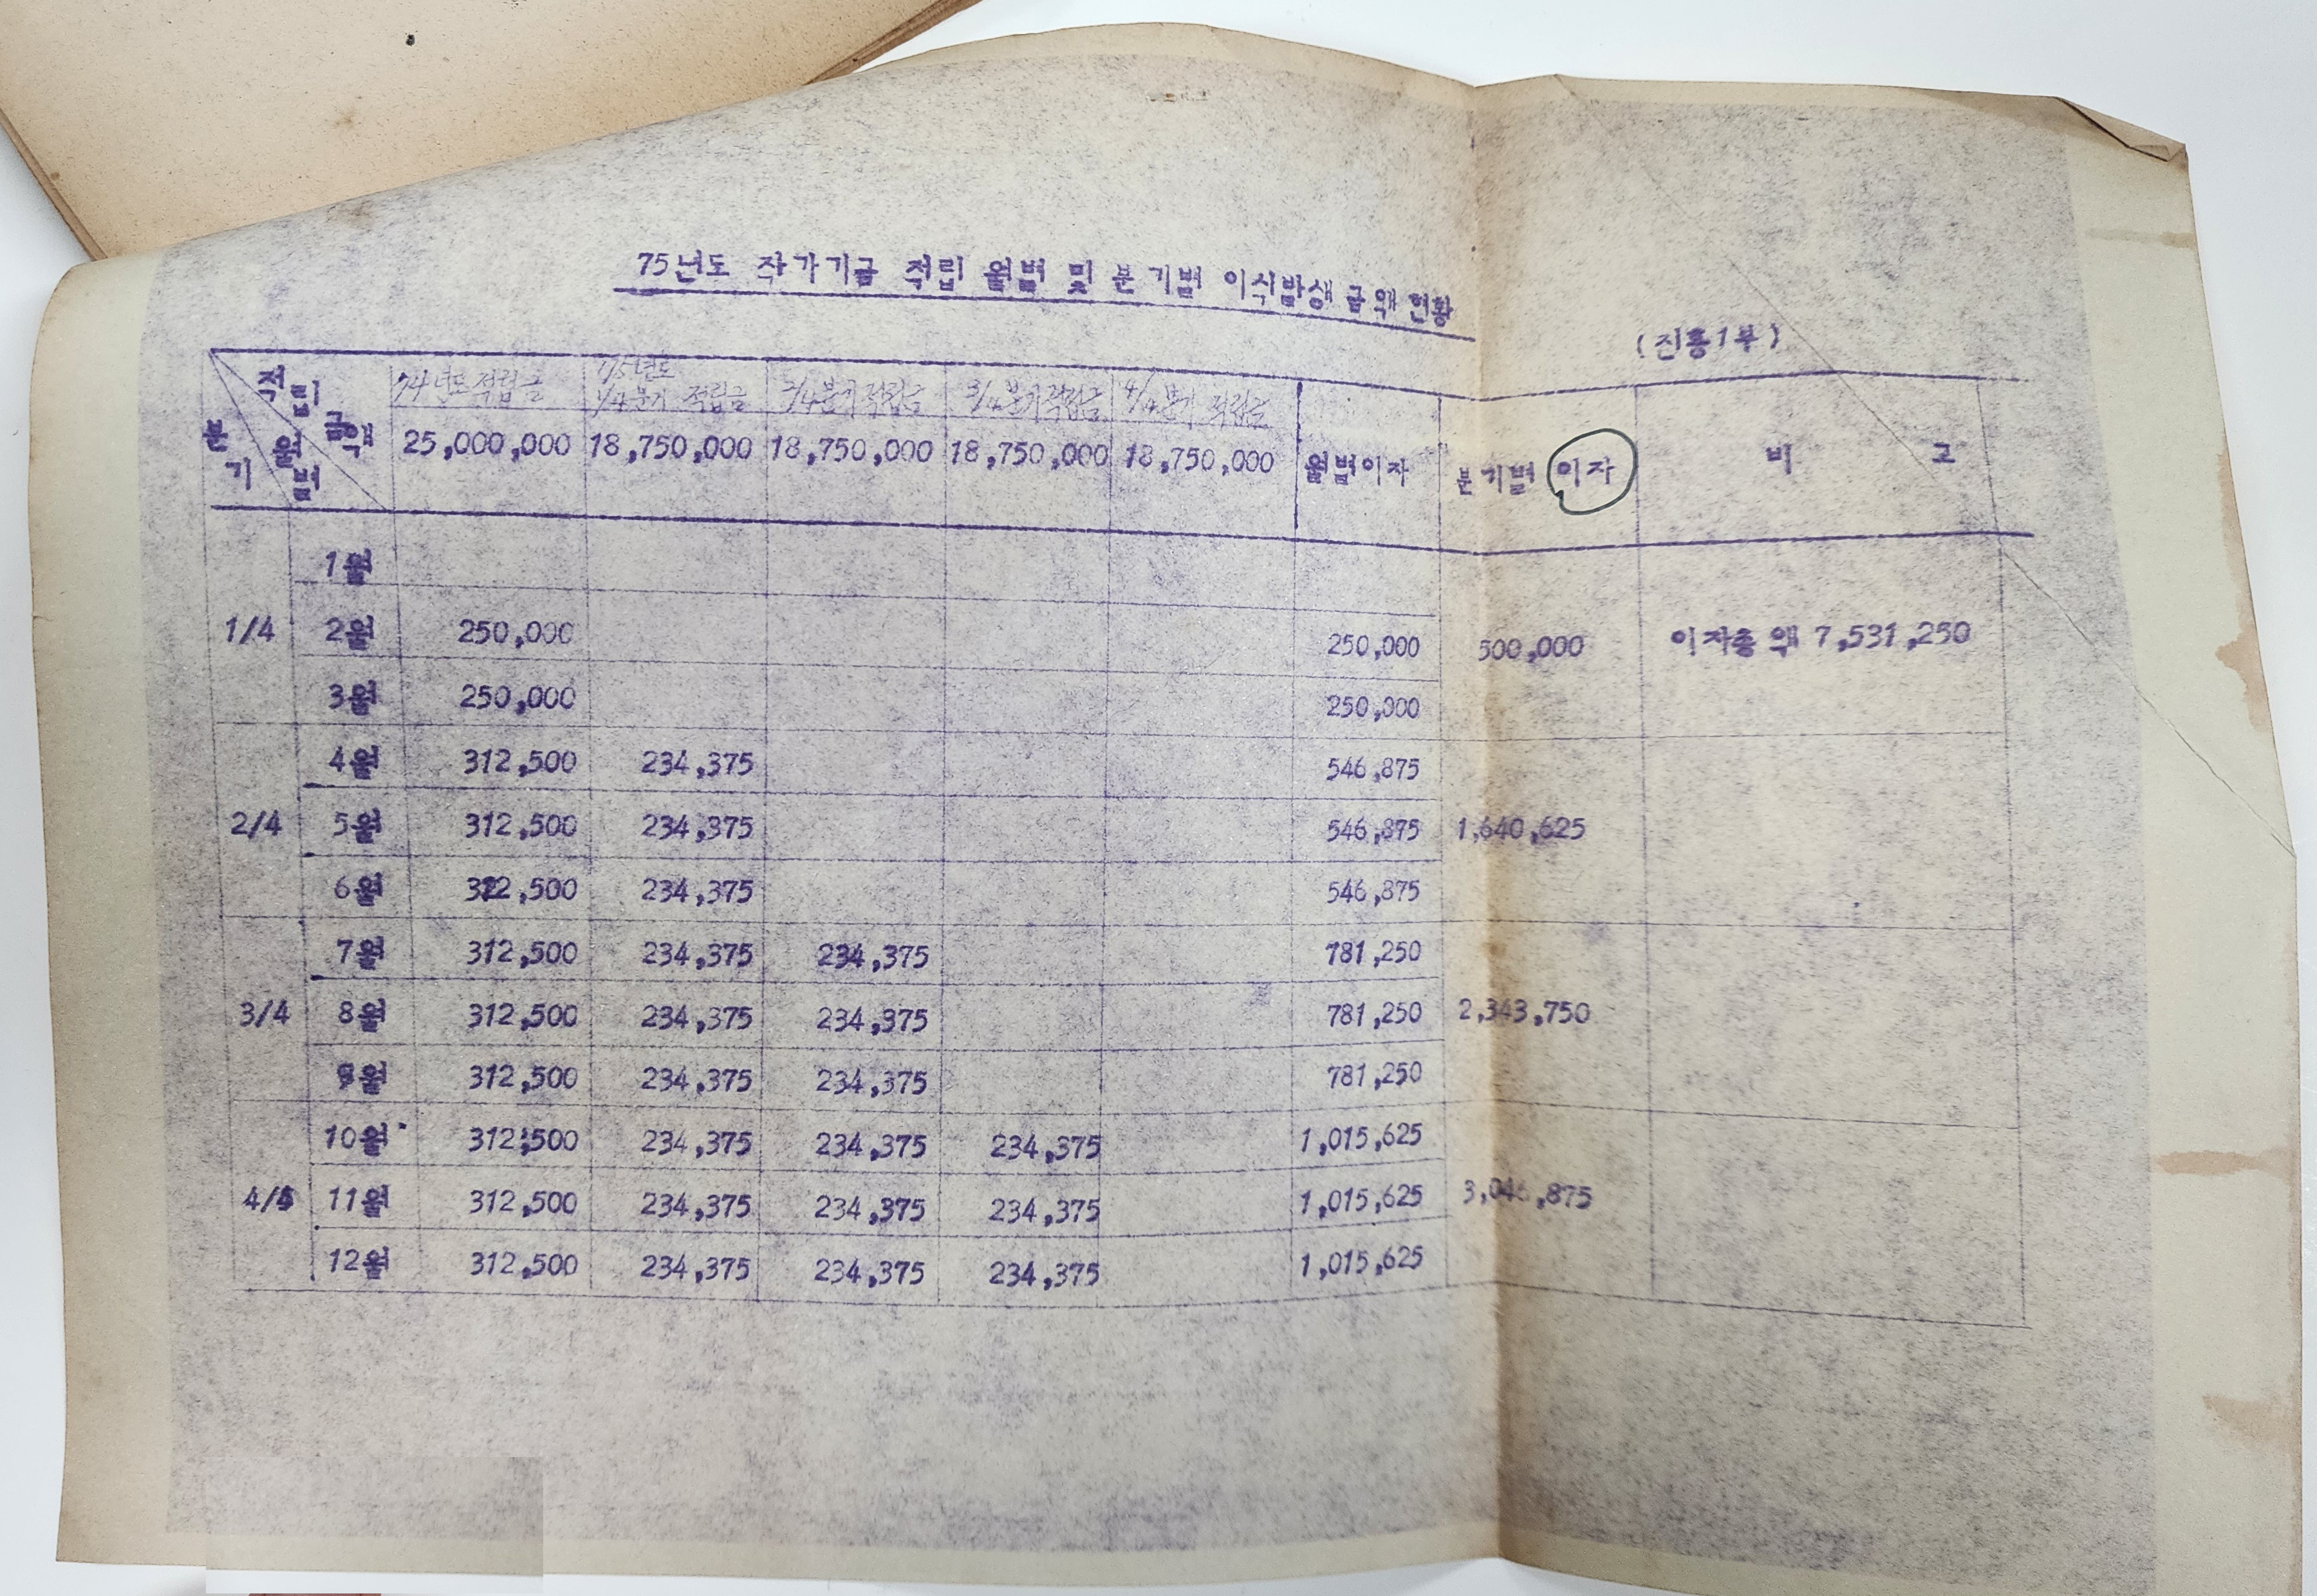 75년도 작가기금 적립 월별 및 분기별 이식발생 금액 현황
(진흥1부)
적립금액
분기
월별
74년도적립금 75년도 1/4분기 적립금 2/4분기적립금 3/4분기적립금 4/4분기 적립금
25,000,000 18,750,000 18,750,000 18,750,000 18,750,000 월별이자 분기별 이자 비 고
1월
1/4 2월 250,000 250,000 500,000 이자총액 7,531,250
3월 250,000 250,000
4월 312,500 234,375 546,875
2/4 5월 312,500 234,375 546,875 1,640,625
6월 312,500 234,375 546,875
7월 312,500 234,375 234,375 781,250
3/4 8월 312,500 234,375 234,375 781,250 2,343,750
9월 312,500 234,375 234,375 781,250
10월 312,500 234,375 234,375 234,375 1,015,625
4/4 11월 312,500 234,375 234,375 234,375 1,015,625 3,046,875
12월 312,500 234,375 234,375 234,375 1,015,625